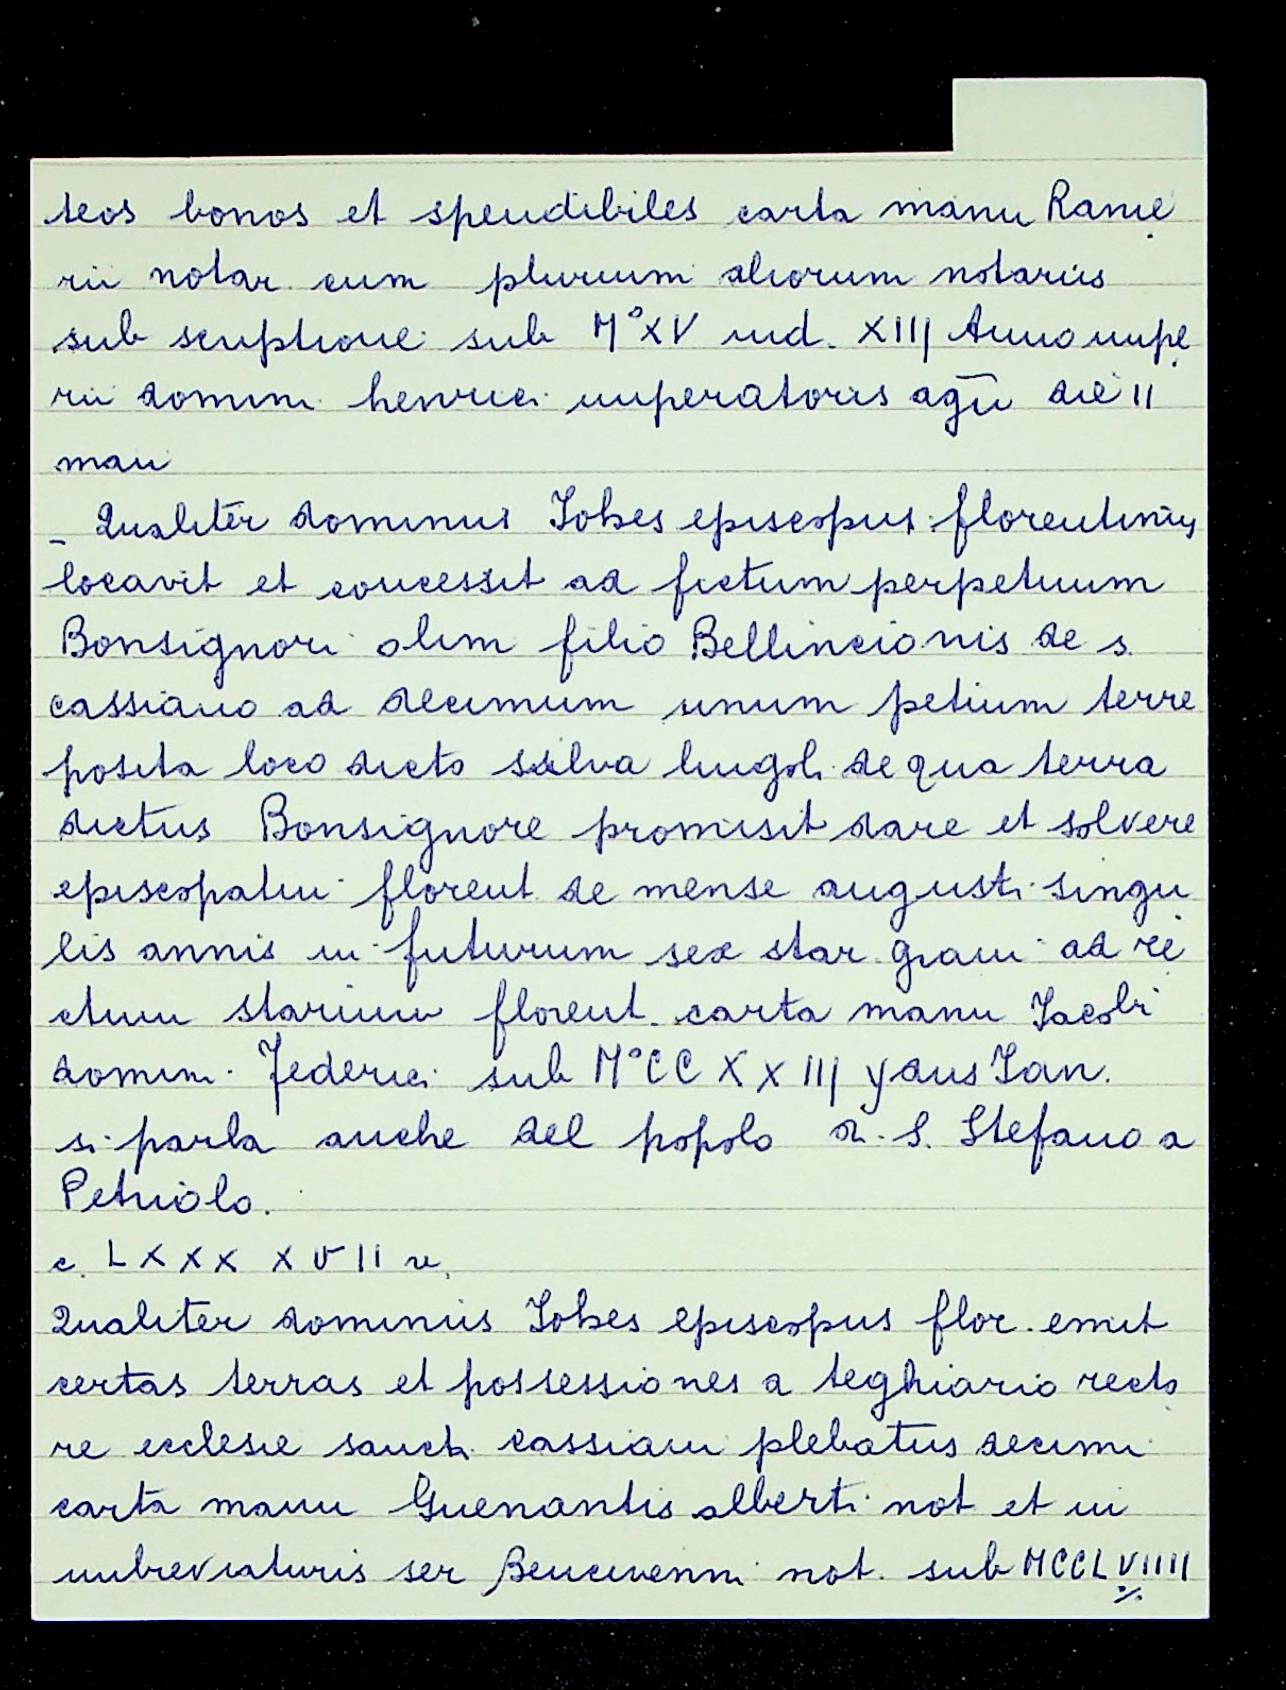 teos bonos et spendibiles carta manu Ranie
rii notar. cum plurium aliorum notariis
sub scriptione sub M°XV ind. XIII Anno impe
rii domini henrici imperatoris agū die II
maii
- Qualiter dominus Johes episcopus florentinus
locavit et concessit ad fictum perpetuum
Bonsignori olim filio Bellincionis de s.
cassiano ad decimum unum petium terre
posita loco dicto salva lingoli de qua terra
dictus Bonsignore promisit dare et solvere
episcopatui florent. de mense augusti singu
lis annis in futurum sex star. grani ad re
ctum starium florent. carta manu Jacobi
domini Federici sub M°CCXXIII ydus Ian.
si parla anche del popolo di S. Stefano a
Petriolo.
c. LXXX XVII r.
Qualiter dominus Johes episcopus flor. emit
certas terras et possessiones a teghiario recto
re ecclesie sancti cassiani plebatus decimi
carta manu Guenantis alberti not et in
imbreviaturis ser Bencivenni not. sub MCCLVIIII